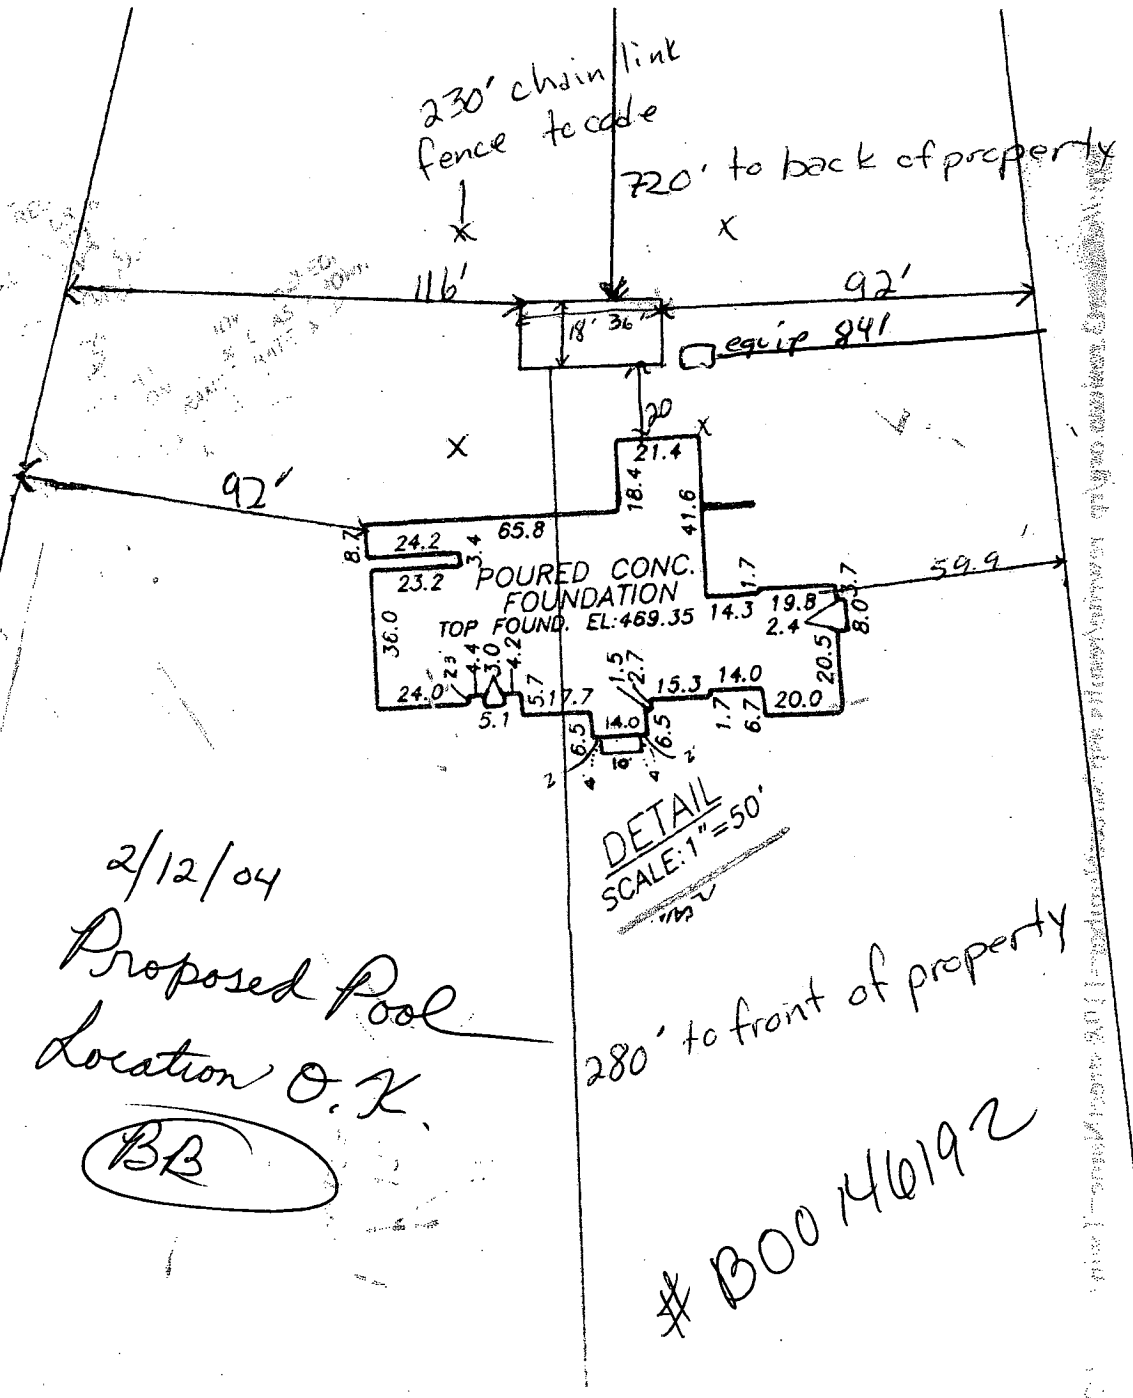 230' chain link
fence to code
720' to back of property
X
X
116'
92'
18' 36'
equip 84'
20
X
X
21.4
92'
18.4
41.6
65.8
8.7
24.2
3.4
23.2
POURED CONC.
FOUNDATION
TOP FOUND. EL:469.35
14.3
1.7
19.8
3.7
59.9'
2.4
8.0
36.0
20.5
24.0
2.3
4.4
3.0
4.2
5.1
5.7
17.7
1.5
2.7
15.3
14.0
1.7
6.7
20.0
6.5
14.0
6.5
2
4
10'
4
2
DETAIL
SCALE: 1"=50'
2/12/04
Proposed Pool
Location O.K.
BB
280' to front of property
# B00146192